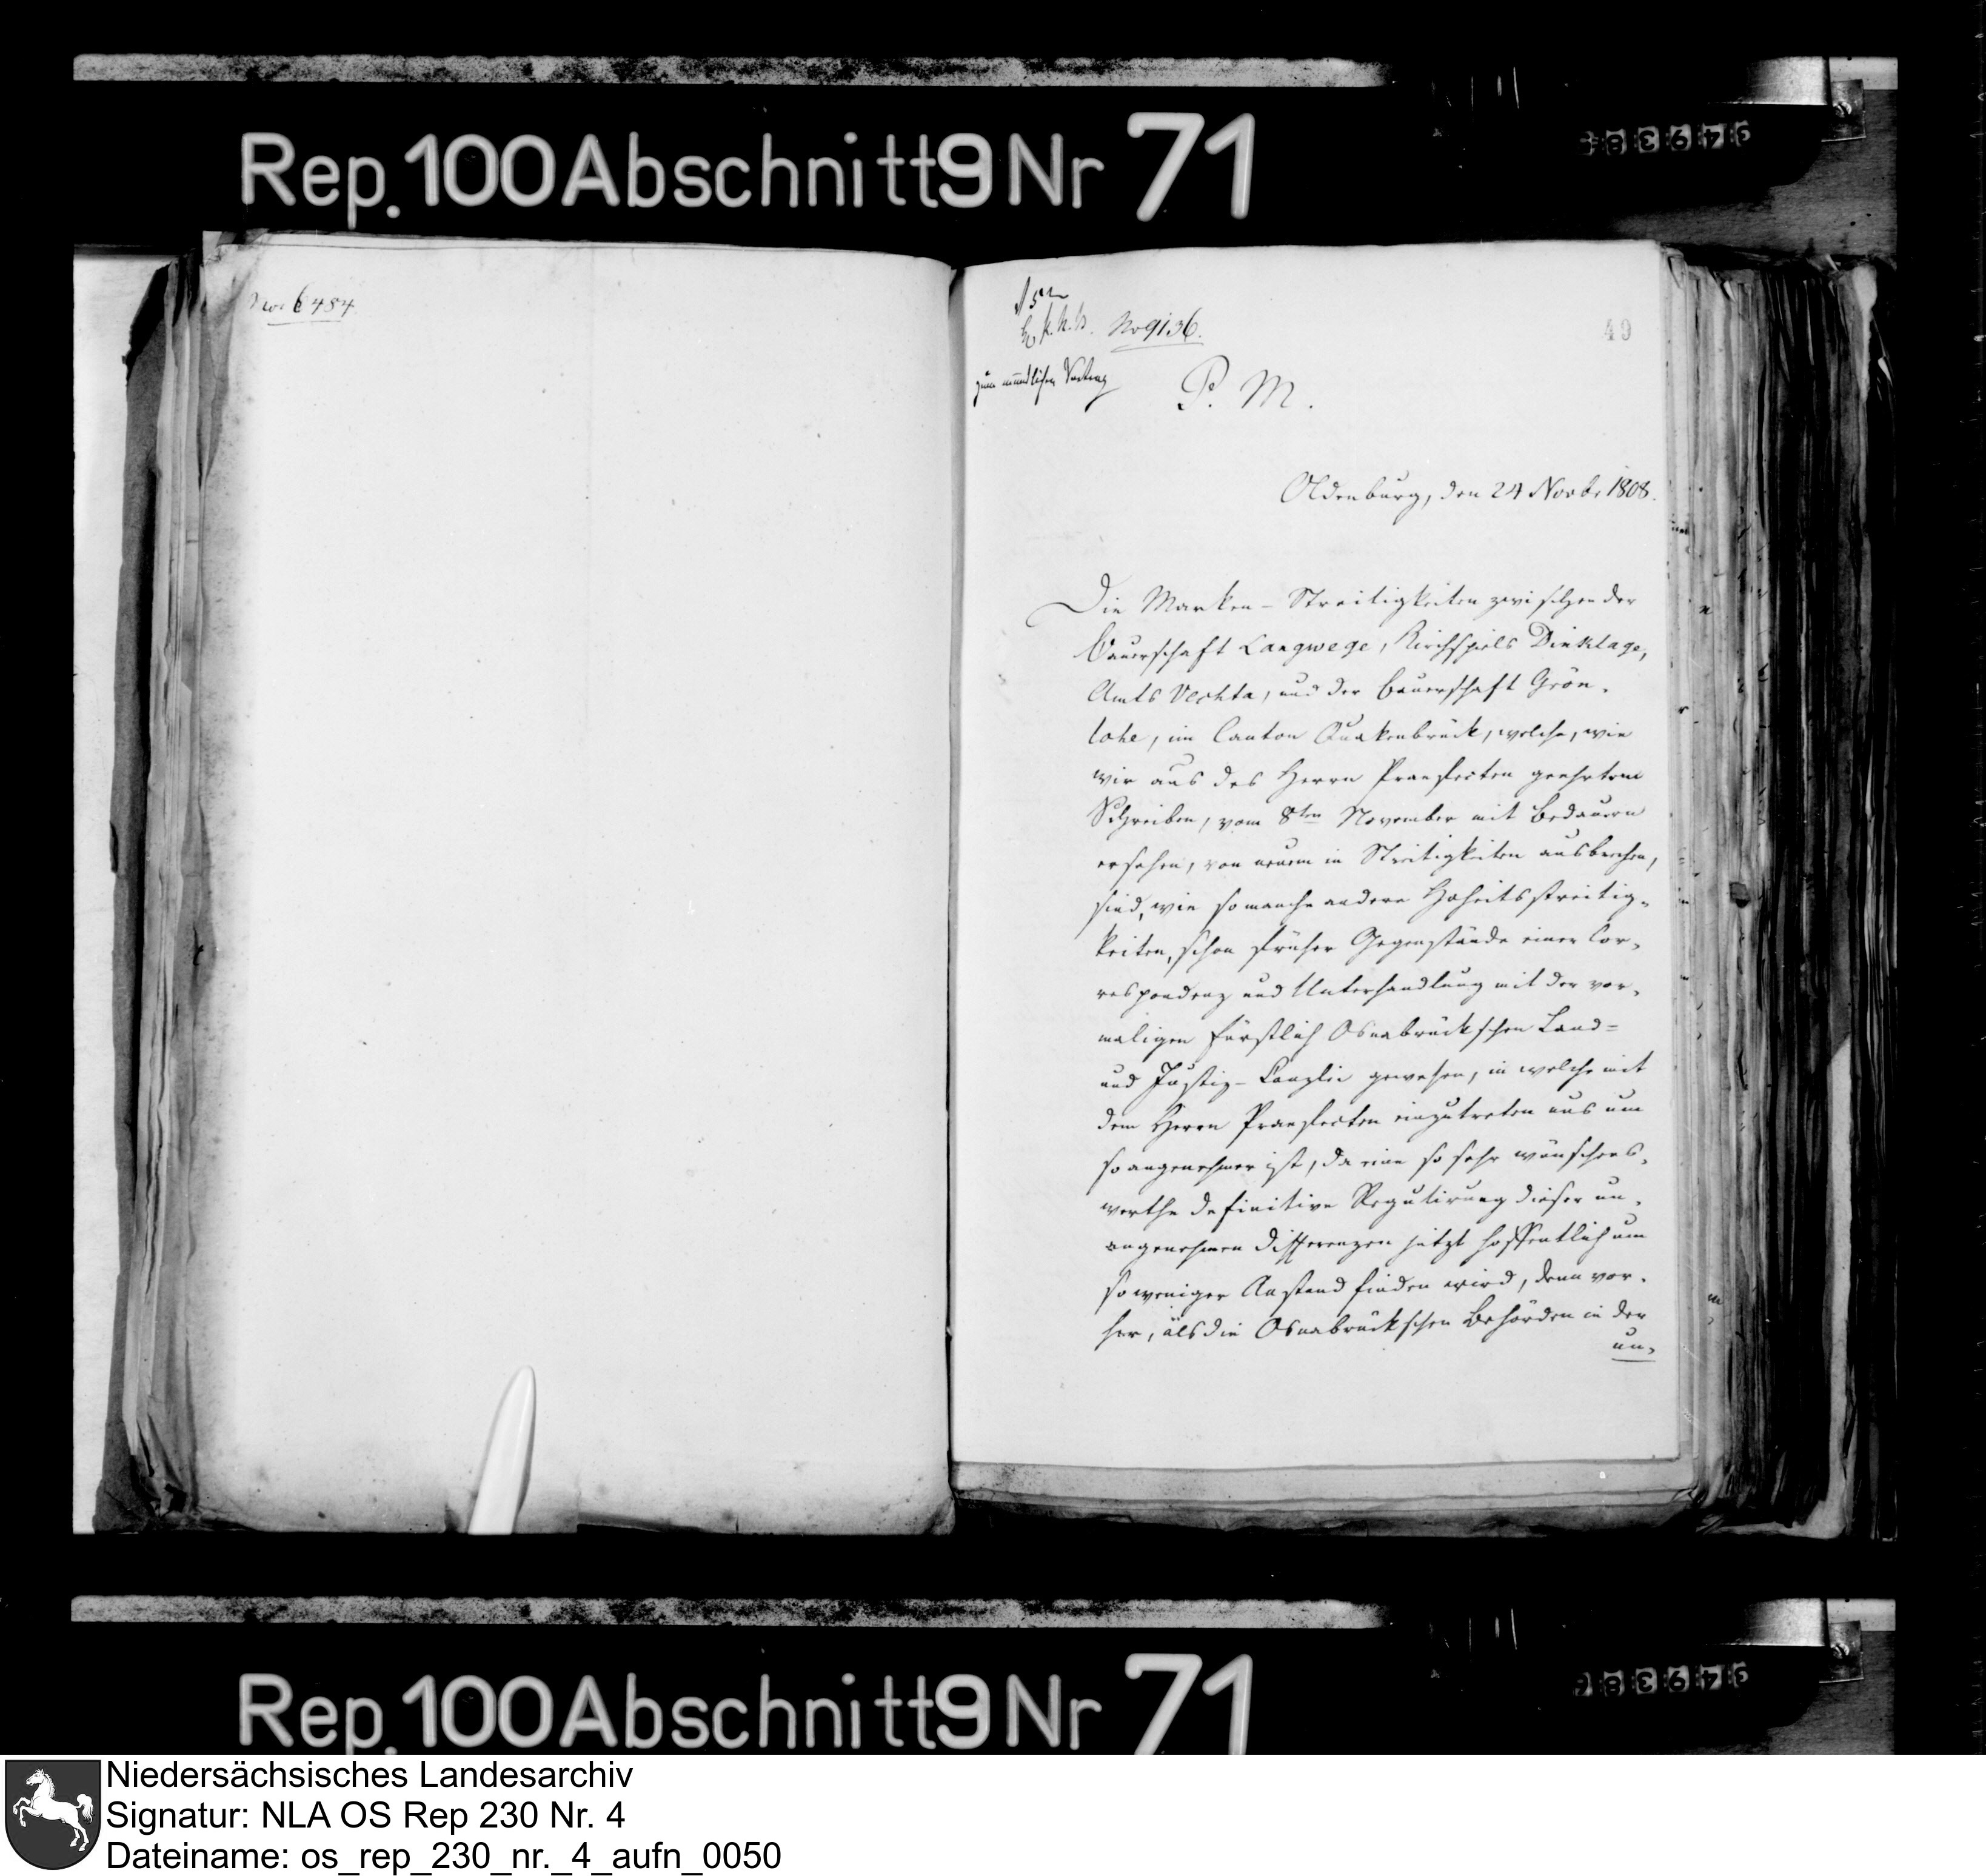 Rep. 100 Abschnitt 9 Nr 71
No. 6484.
No 9136.
49
zum mündlichen Vortrag
P. M.
Oldenburg, den 24 Novbr 1808.
Die Marken-Streitigkeiten zwischen der
Bauerschaft Langwege, Kirchspiels Dinklage,
Amts Vechta, und der Bauerschaft Grön-
lohe, im Canton Quakenbrück, welche, wie
wir aus des Herrn Praefecten geehrtem
Schreiben, vom 8ten November mit Bedauern
ersehen, von neuem in Streitigkeiten ausbrechen,
sind, wie so manche andere Hoheitsstreitig-
keiten, schon früher Gegenstände einer Cor-
respondenz und Unterhandlung mit der vor-
maligen Fürstlich Osnabrückschen Land-
und Justiz-Canzlei gewesen, in welche mit
dem Herrn Praefecten einzutreten uns um
so angenehmer ist, da eine so sehr wünschens-
werthe definitive Regulirung dieser un-
angenehmen Differenzen jetzt hoffentlich um
so weniger Anstand finden wird, denn vor-
her, als die Osnabrückschen Behörden in der
un-
Rep. 100 Abschnitt 9 Nr 71
Niedersächsisches Landesarchiv
Signatur: NLA OS Rep 230 Nr. 4
Dateiname: os_rep_230_nr._4_aufn_0050